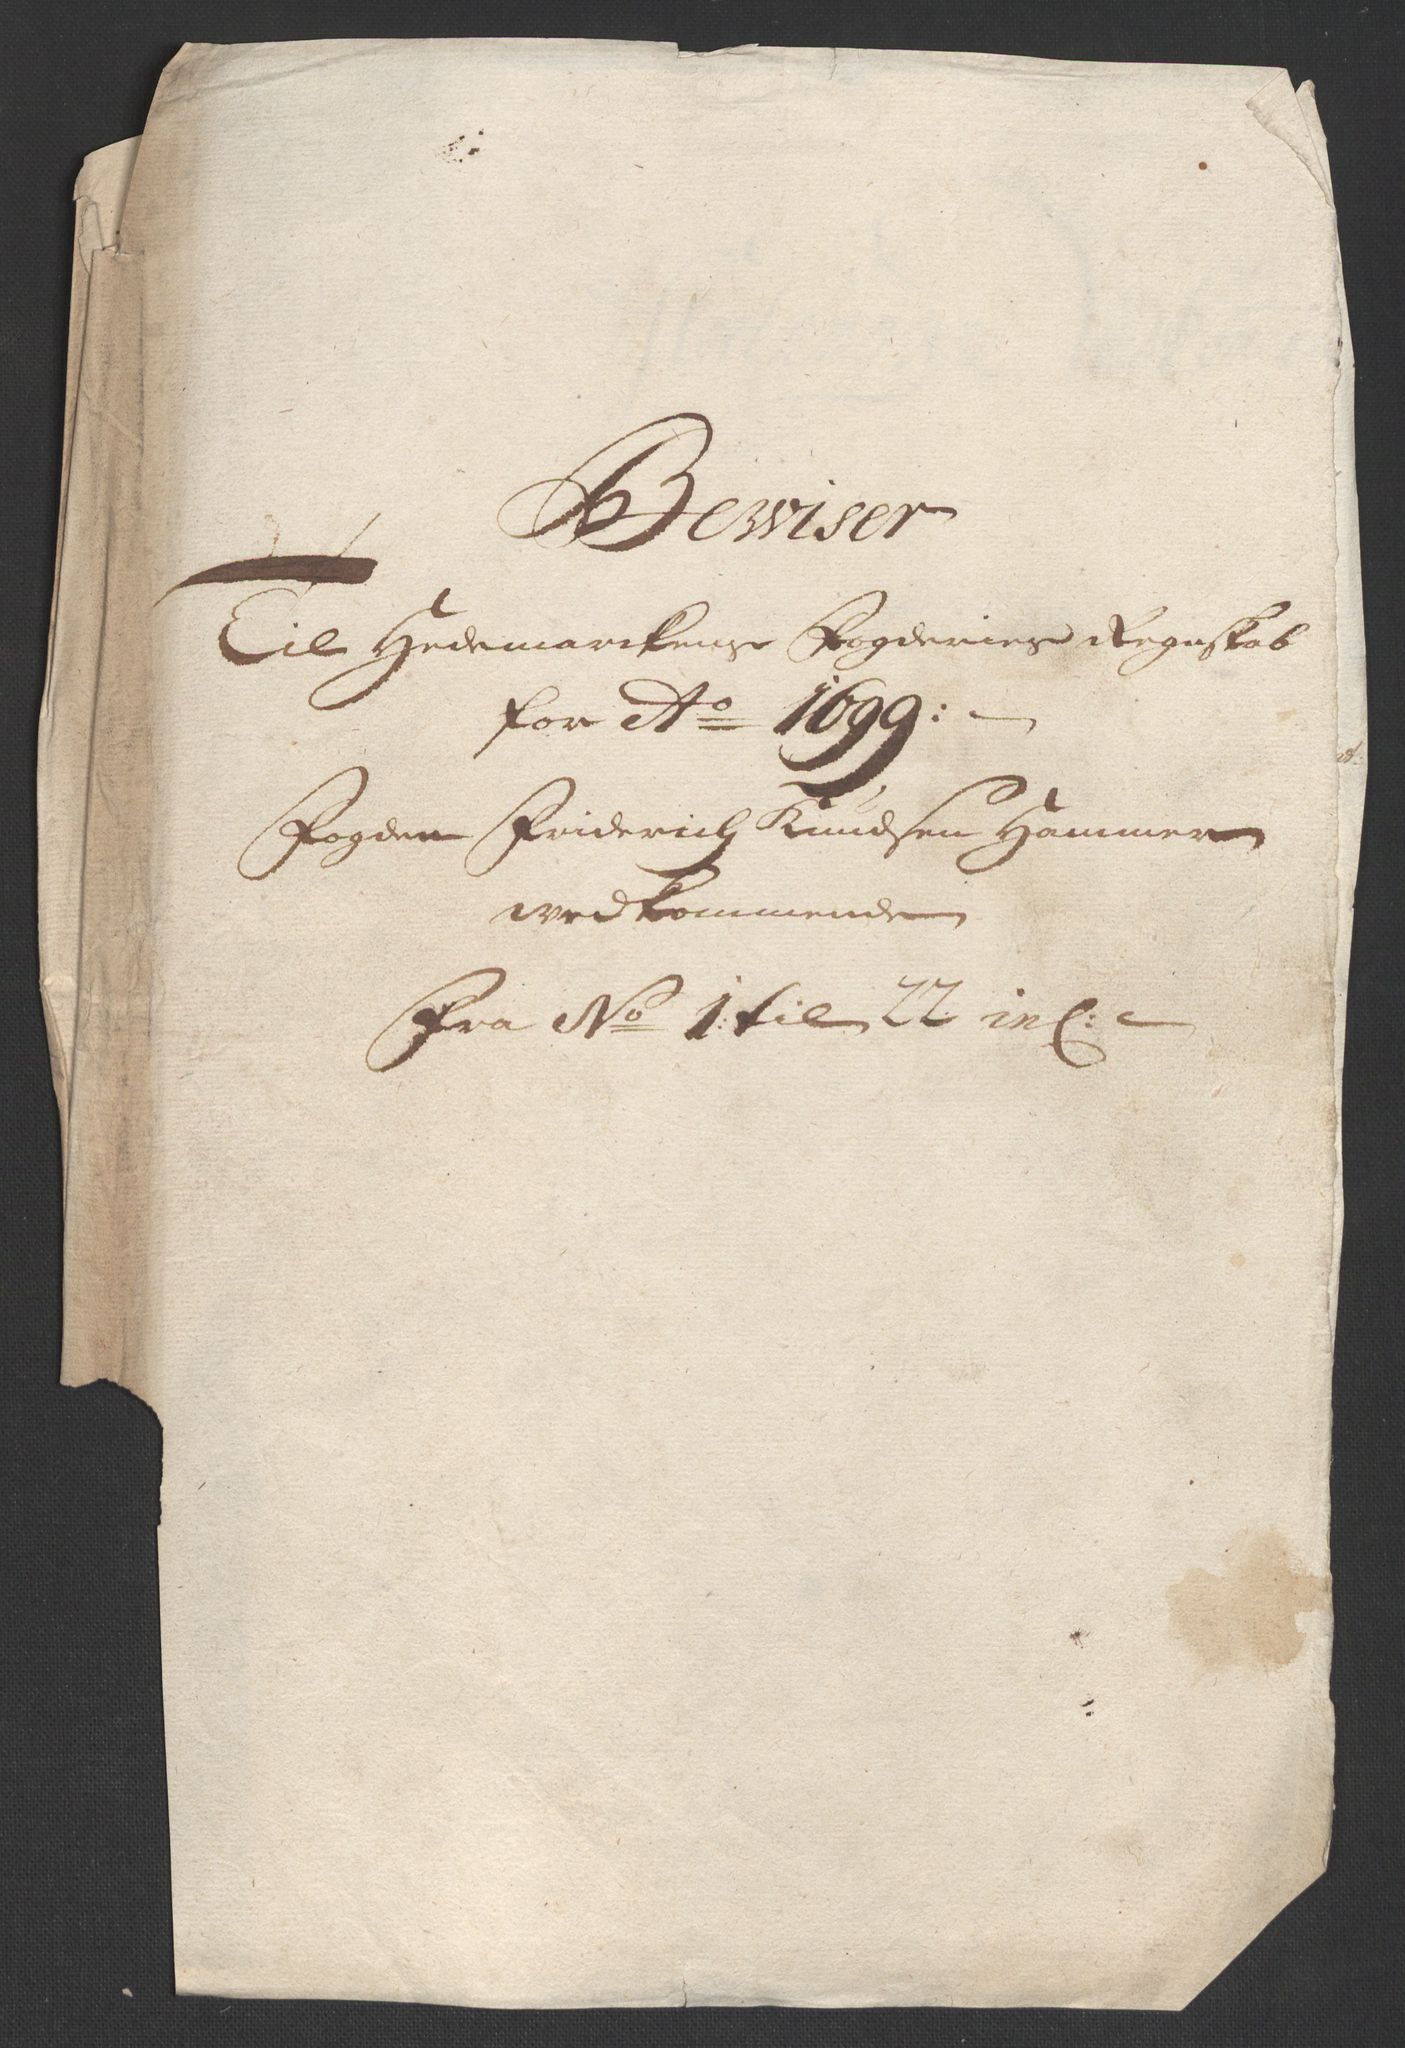 Bewiser
Til Hedemarckens Fogderies Regnskab
for Ao 1699:
Fogden Friderich Knudsen Hammer
vedkommende
Fra No 1: til 22 incl: